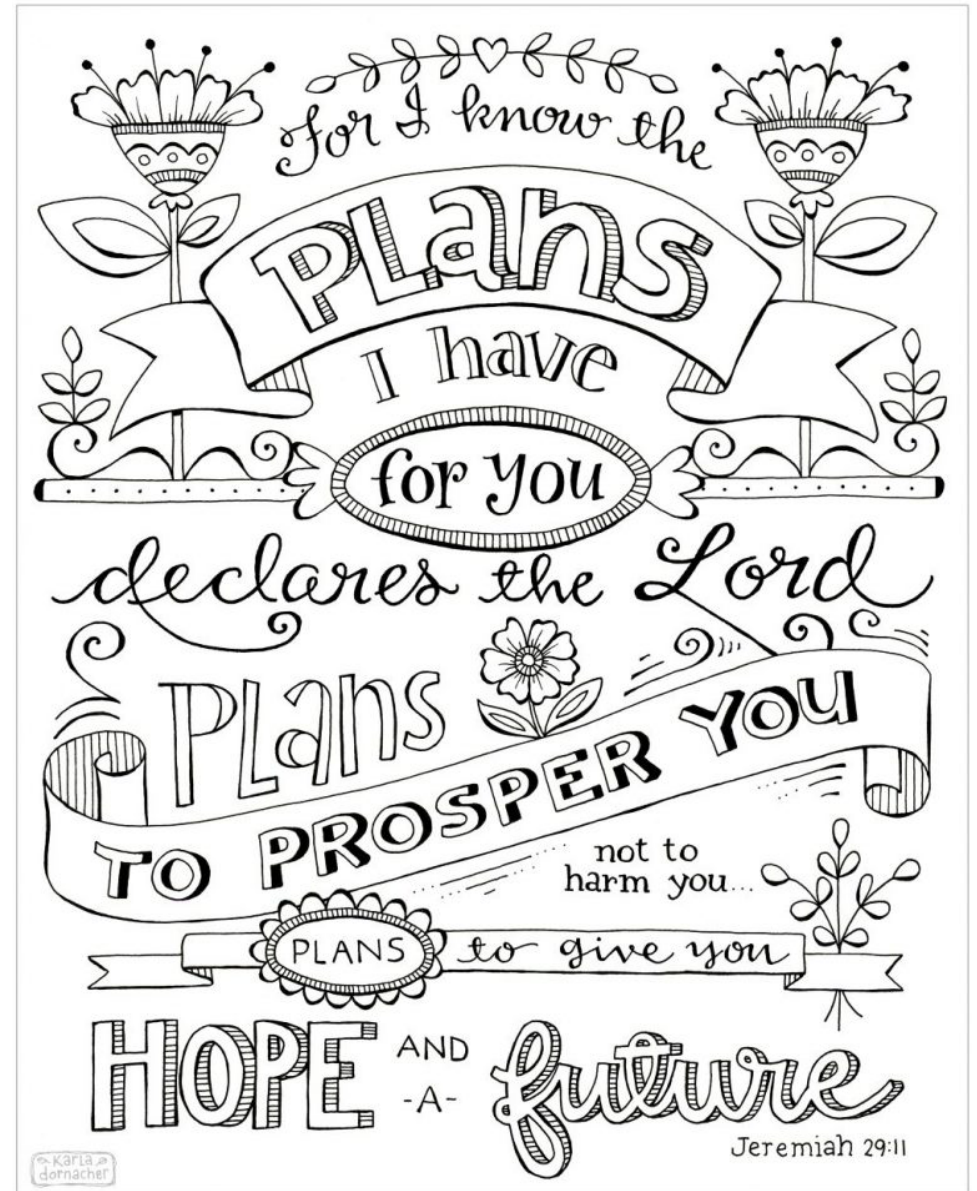 For I know the
PLans
I have
for you
declares the Lord
PLans
TO PROSPER YOU
not to
harm you...
PLANS to give you
HOPE AND
-A- future
Jeremiah 29:11
Karla
dornacher